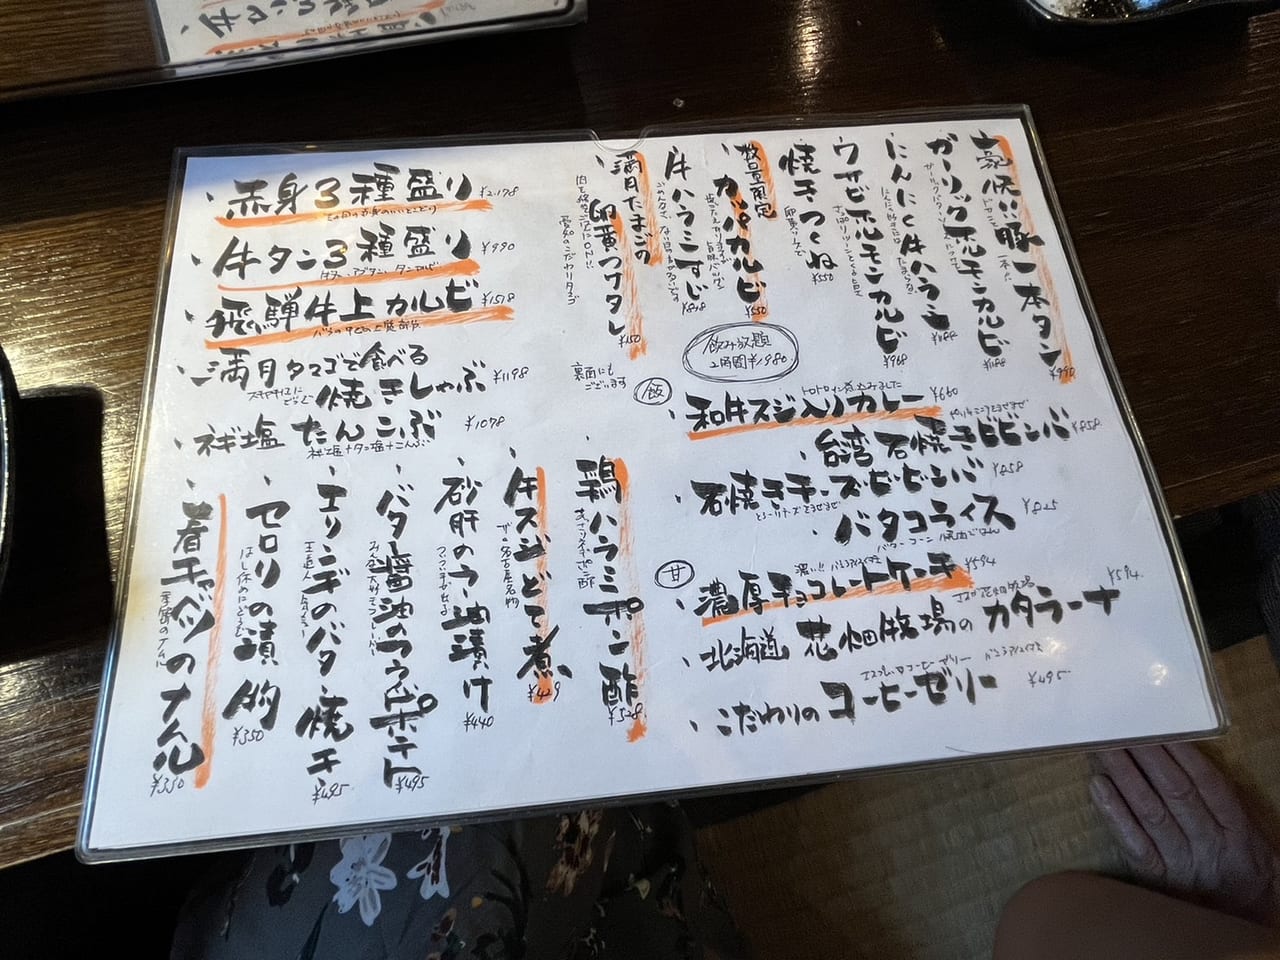 赤身3種盛り ¥2,178
牛タン3種盛り ¥990
飛騨牛上カルビ ¥1518
満月タマゴで食べる
焼きしゃぶ ¥1198
ネギ塩たんこぶ ¥1078
ネギ塩+タン塩+こんぶ
豪快!!豚一本タン ¥990
ガーリックホルモンカルビ ¥1188
にんにく牛ハラミ ¥1188
ワサビホルモンカルビ ¥968
焼きつくね ¥550
卵黄ソースで
数量限定
カパカルビ ¥550
牛ハラミすじ
満月たまごの
卵黄つけタレ ¥150
飲み放題
2時間¥1980
裏面にも
ございます
飯
和牛スジ入りカレー ¥660
台湾石焼きビビンバ ¥858
石焼きチーズビビンバ ¥858
バタコライス ¥825
甘
濃厚チョコレートケーキ ¥594
北海道 花畑牧場のカタラーナ ¥594
こだわりのコーヒーゼリー ¥495
鶏ハラミポン酢 ¥528
牛スジどて煮 ¥429
ザ・名古屋名物
砂肝のラー油漬け ¥440
バター醤油のフライドポテト ¥495
エリンギのバター焼き ¥495
セロリの漬物 ¥350
はし休めにどうぞ
春キャベツのナムル ¥350
季節のナムル